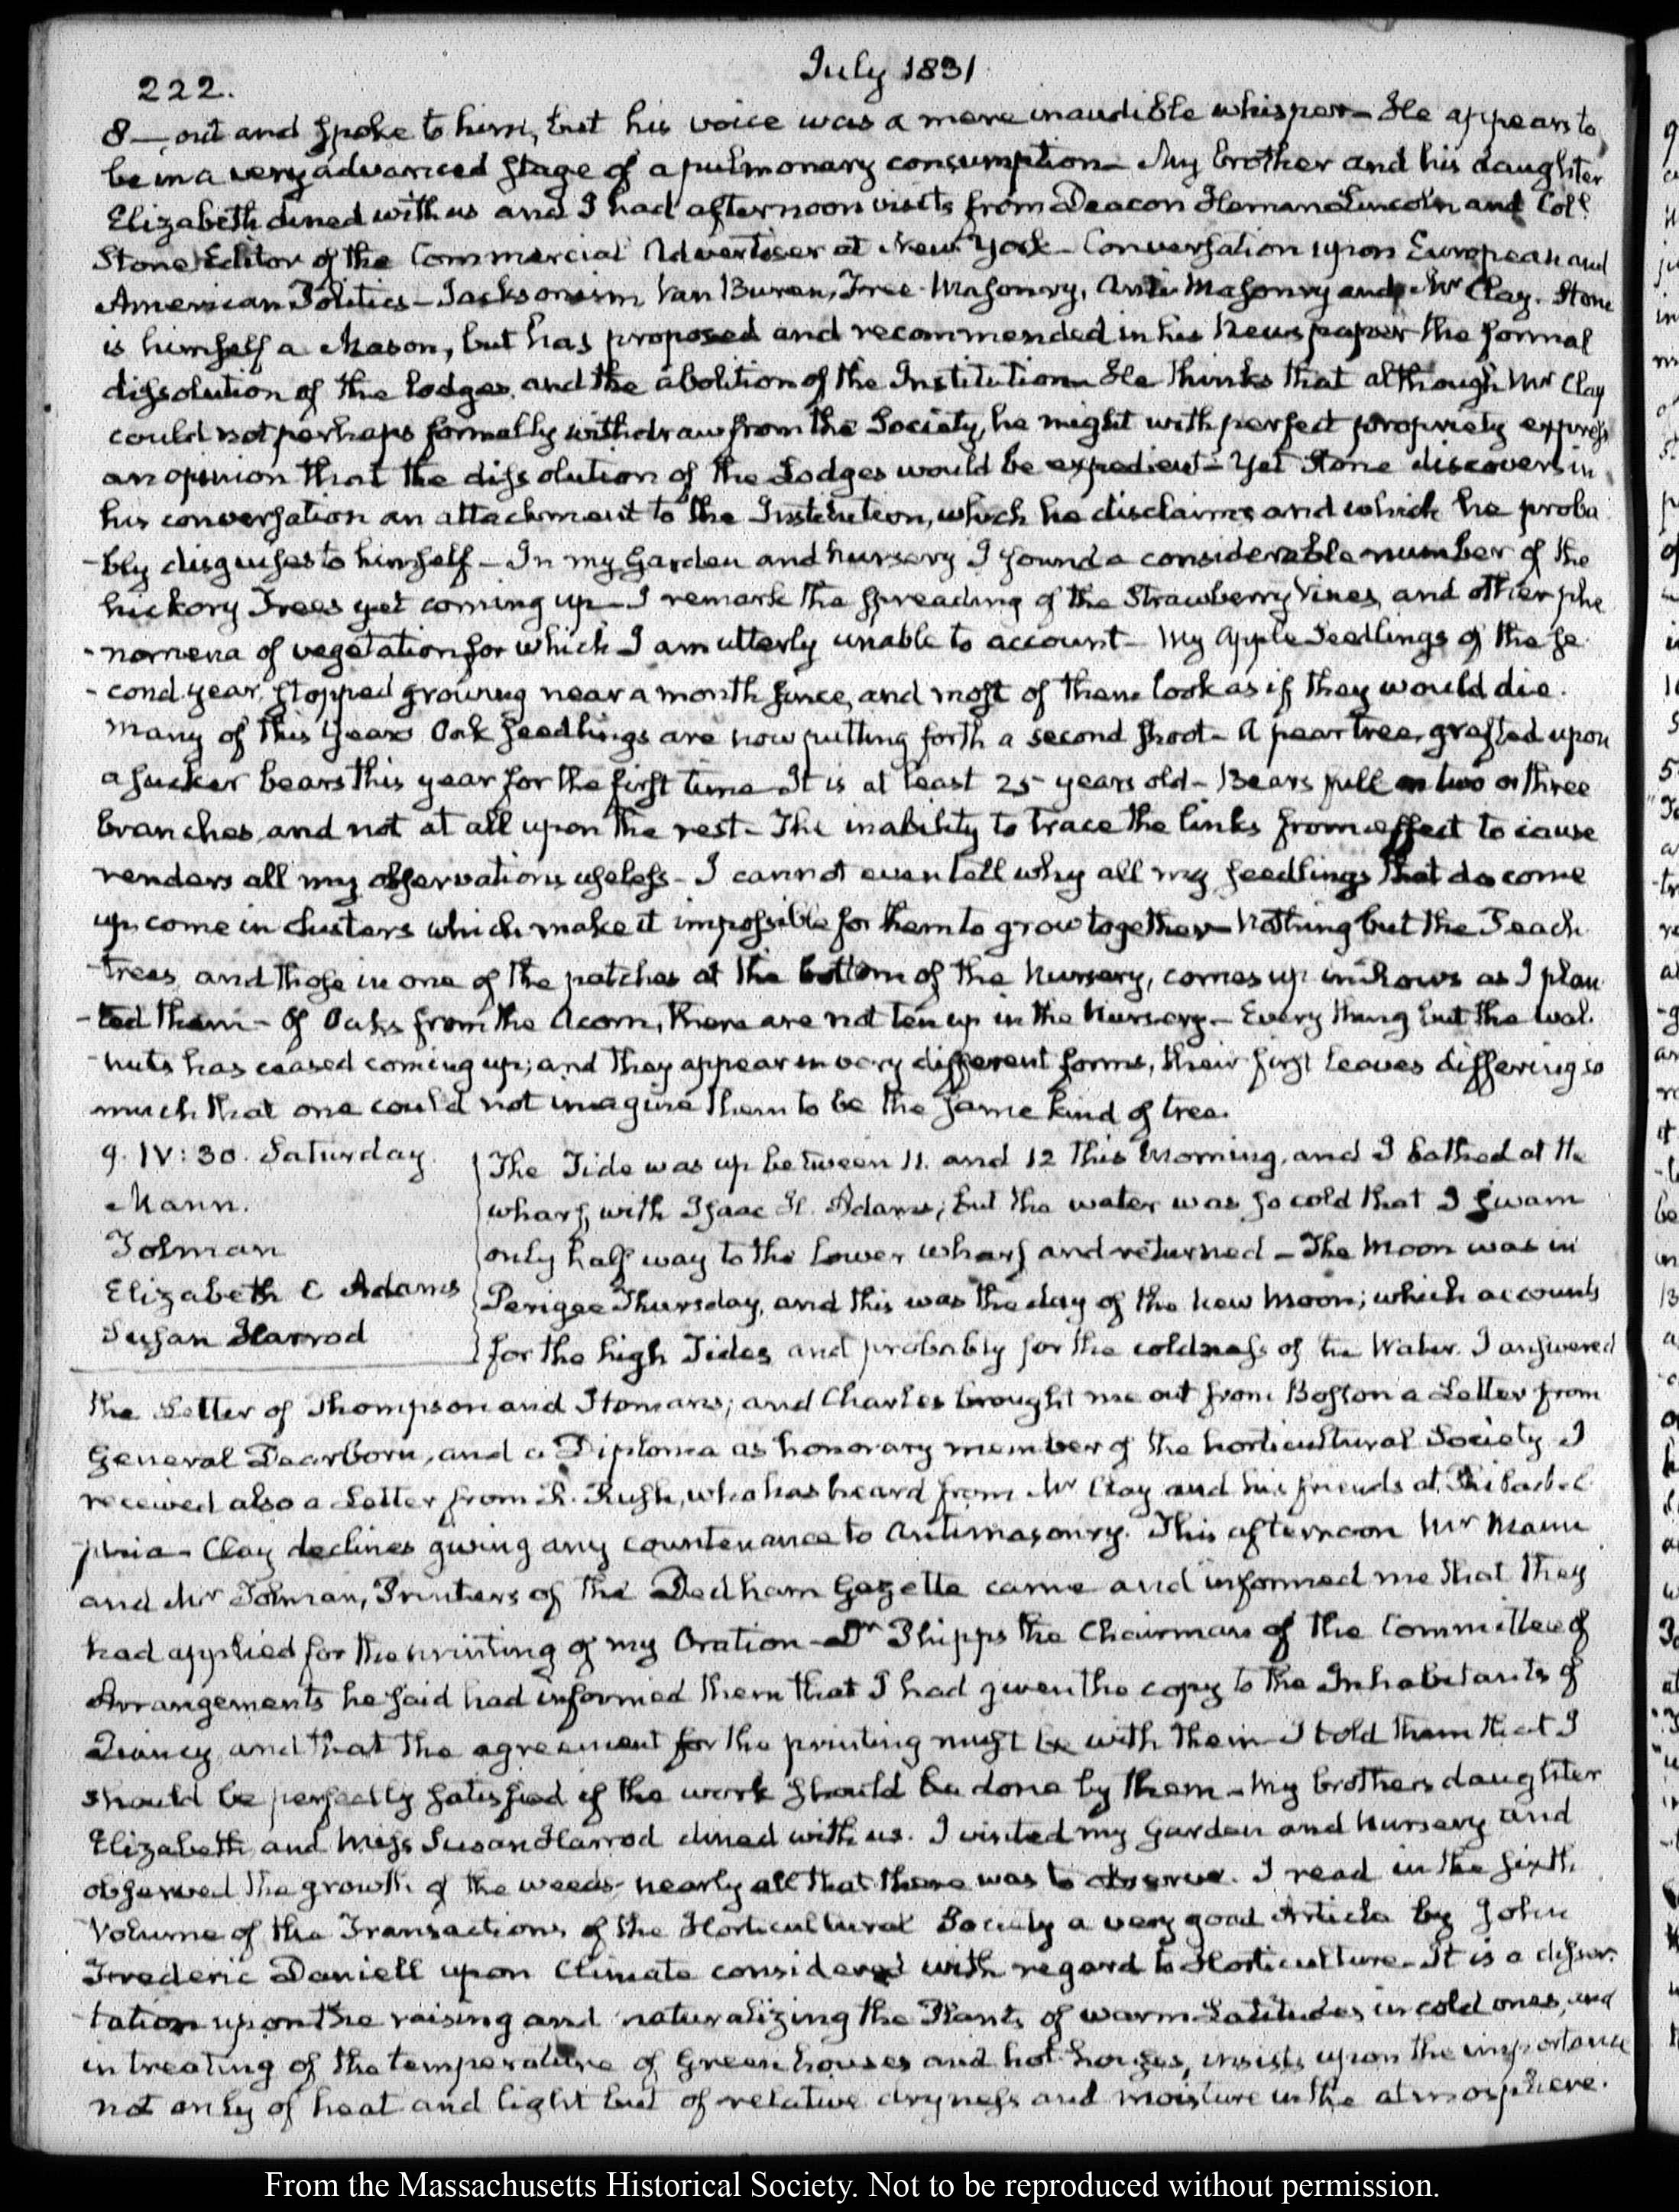 222.
July 1831
8 — out and spoke to him, but his voice was a mere inaudible whisper — He appears to
be in a very advanced stage of a pulmonary consumption — My brother and his daughter
Elizabeth dined with us and I had afternoon visits from Deacon Heman Lincoln and Coll.
Stone Editor of the Commercial Advertiser at New York — Conversation upon European and
American Politics — Jacksonism Van Buren, Free-Masonry, Anti Masonry and Mr Clay. Stone
is himself a Mason, but has proposed and recommended in his Newspaper the formal
dissolution of the Lodges, and the abolition of the Institution — He thinks that although Mr Clay
could not perhaps formally withdraw from the Society, he might with perfect propriety express
an opinion that the dissolution of the Lodges would be expedient — Yet Stone discovers in
his conversation an attachment to the Institution, which he disclaims and which he proba
-bly disguises to himself — In my Garden and Nursery I found a considerable number of the
hickory Trees yet coming up — I remark the spreading of the Strawberry Vines, and other phe
-nomena of vegetation for which I am utterly unable to account — My Apple Seedlings of the se
-cond year, stopped growing near a month since, and most of them look as if they would die.
Many of this Years Oak seedlings are now putting forth a second shoot — A pear tree, grafted upon
a sucker bears this year for the first time — It is at least 25 years old — Bears full on two or three
branches, and not at all upon the rest — The inability to trace the links from effect to cause
renders all my observations useless — I cannot even tell why all my seedlings that do come
up, come in clusters which make it impossible for them to grow together — Nothing but the Peach
trees, and those in one of the patches at the bottom of the Nursery, comes up in Rows as I plan
-ted them — Of Oaks from the Acorn, there are not ten up in the Nursery — Every thing but the wal
-nuts has ceased coming up; and they appear in very different forms, their first leaves differing so
much that one could not imagine them to be the same kind of tree.
9. IV: 30. Saturday
Mann.
Tolman
Elizabeth C Adams
Susan Harrod
The Tide was up between 11. and 12 this Morning, and I bathed at the
wharf, with Isaac H. Adams; but the water was so cold that I swam
only half way to the lower wharf and returned — The Moon was in
Perigee Thursday, and this was the day of the new Moon; which accounts
for the high Tides, and probably for the coldness of the Water. I answered
the Letter of Thompson and Homans; and Charles brought me out from Boston a Letter from
General Dearborn, and a Diploma as honorary member of the horticultural Society. I
received also a Letter from R. Rush, who has heard from Mr Clay and his friends at Philadel
phia — Clay declines giving any countenance to Antimasonry. This afternoon Mr Mann
and Mr Tolman, Printers of the Dedham Gazette came and informed me that they
had applied for the printing of my Oration — Dr Phipps the Chairman of the Committee of
Arrangements he said had informed them that I had given the copy to the Inhabitants of
Quincy, and that the agreement for the printing must be with them — I told them that I
should be perfectly satisfied if the work should be done by them — My brothers daughter
Elizabeth and Miss Susan Harrod dined with us. I visited my Garden and Nursery and
observed the growth of the weeds, nearly all that there was to observe. I read in the sixth
Volume of the Transactions of the Horticultural Society a very good Article by John
Frederic Daniell upon Climate considered with regard to Horticulture — It is a disser
tation upon the raising and naturalizing the Plants of warm Latitudes in cold ones, and
in treating of the temperature of Green houses and hot-houses, insists upon the importance
not only of heat and light but of relative dryness and moisture in the atmosphere.
From the Massachusetts Historical Society. Not to be reproduced without permission.